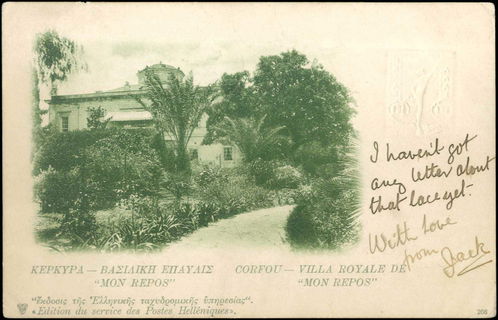 I haven't got
any letter about
that lace yet.
With love
from Jack
ΚΕΡΚΥΡΑ — ΒΑΣΙΛΙΚΗ ΕΠΑΥΛΙΣ
"MON REPOS"
CORFOU — VILLA ROYALE DE
"MON REPOS"
"Ἔκδοσις τῆς Ἑλληνικῆς ταχυδρομικῆς ὑπηρεσίας".
«Edition du service des Postes Helléniques».
206